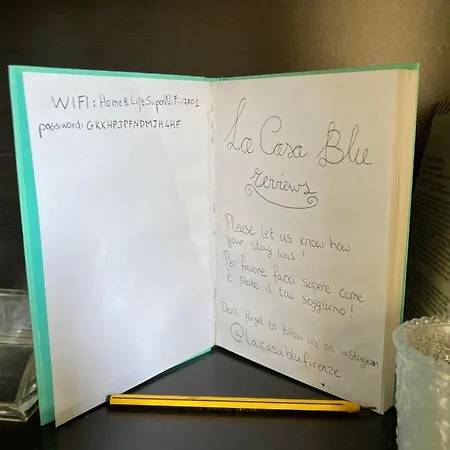 WIFI: Home&Life SuperWiFi-7101
password: GKKHPJPFNDMJH4HF
La Casa Blu
reviews
Please let us know how
your stay was!
Per favore facci sapere come
è stato il tuo soggiorno!
Don't forget to follow us on instagram
@lacasablufirenze